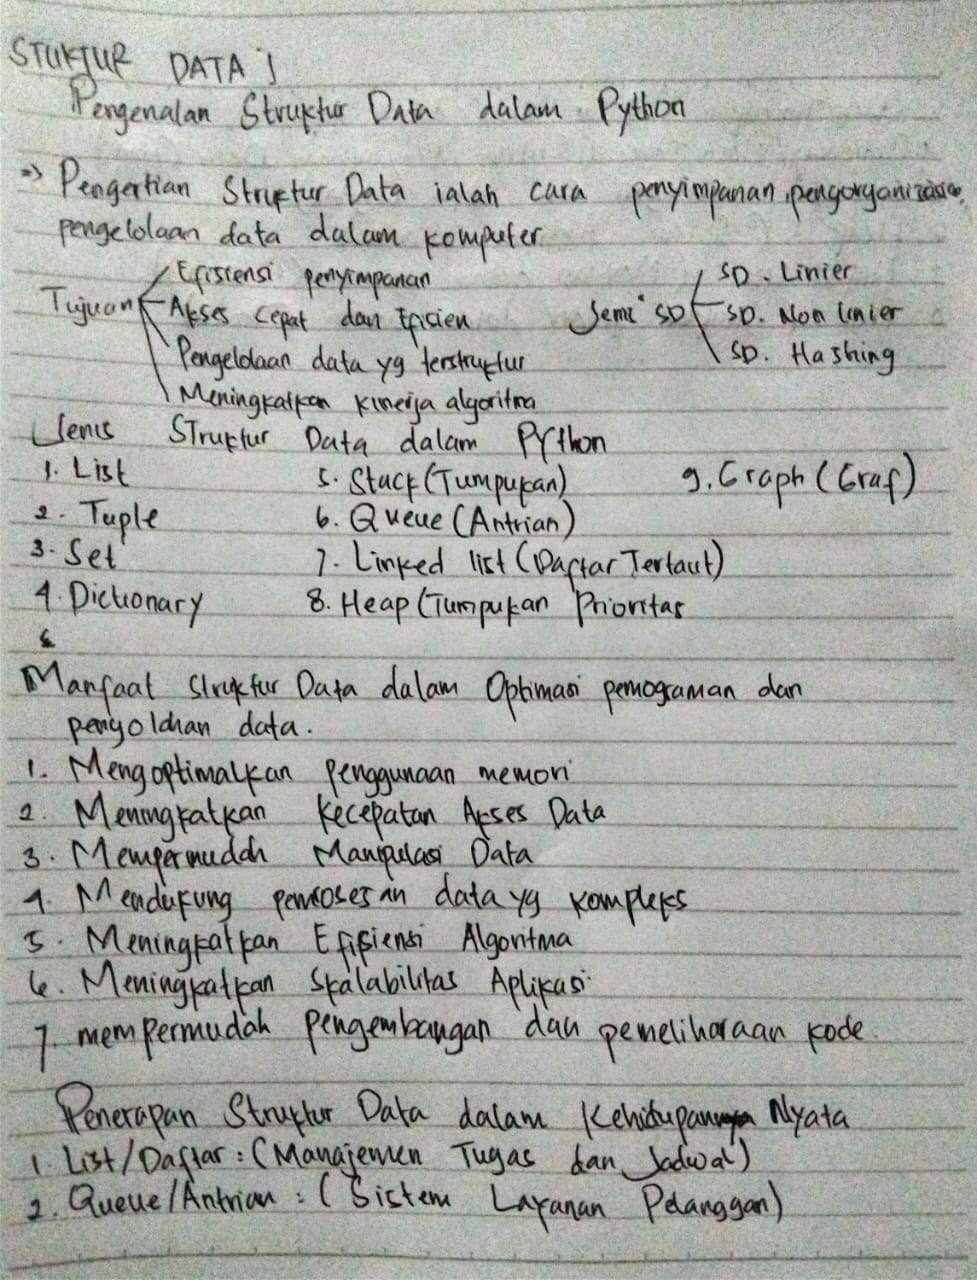 STUKTUR DATA;
Pengenalan Struktur Data dalam Python
=> Pengertian Struktur Data ialah cara penyimpanan, pengorganizasian,
pengelolaan data dalam komputer
Tujuan
Efisiensi penyimpanan
Akses cepat dan Efisien
Pengelolaan data yg terstruktur
Meningkatkan kinerja algoritma
SD. Linier
SD. Non linier
SD. Hashing
Jenis Struktur Data dalam Python
1. List
2. Tuple
3. Set
4. Dictionary
5. Stack (Tumpukan)
6. Queue (Antrian)
7. Linked list (Daftar Tertaut)
8. Heap (Tumpukan Prioritas
9. Graph (Graf)
Manfaat Struktur Data dalam Optimasi pemograman dan
pengolahan data.
1. Mengoptimalkan penggunaan memori
2. Meningkatkan Kecepatan Akses Data
3. Mempermudah Manipulasi Data
4. Mendukung pemrosesan data yg kompleks
5. Meningkatkan Efisiensi Algoritma
6. Meningkatkan Skalabilitas Aplikasi
7. mempermudah pengembangan dan pemeliharaan kode.
Penerapan Struktur Data dalam Kehidupan Nyata
1. List/Daftar : (Manajemen Tugas dan Jadwal)
2. Queue/Antrian : (Sistem Layanan Pelanggan)